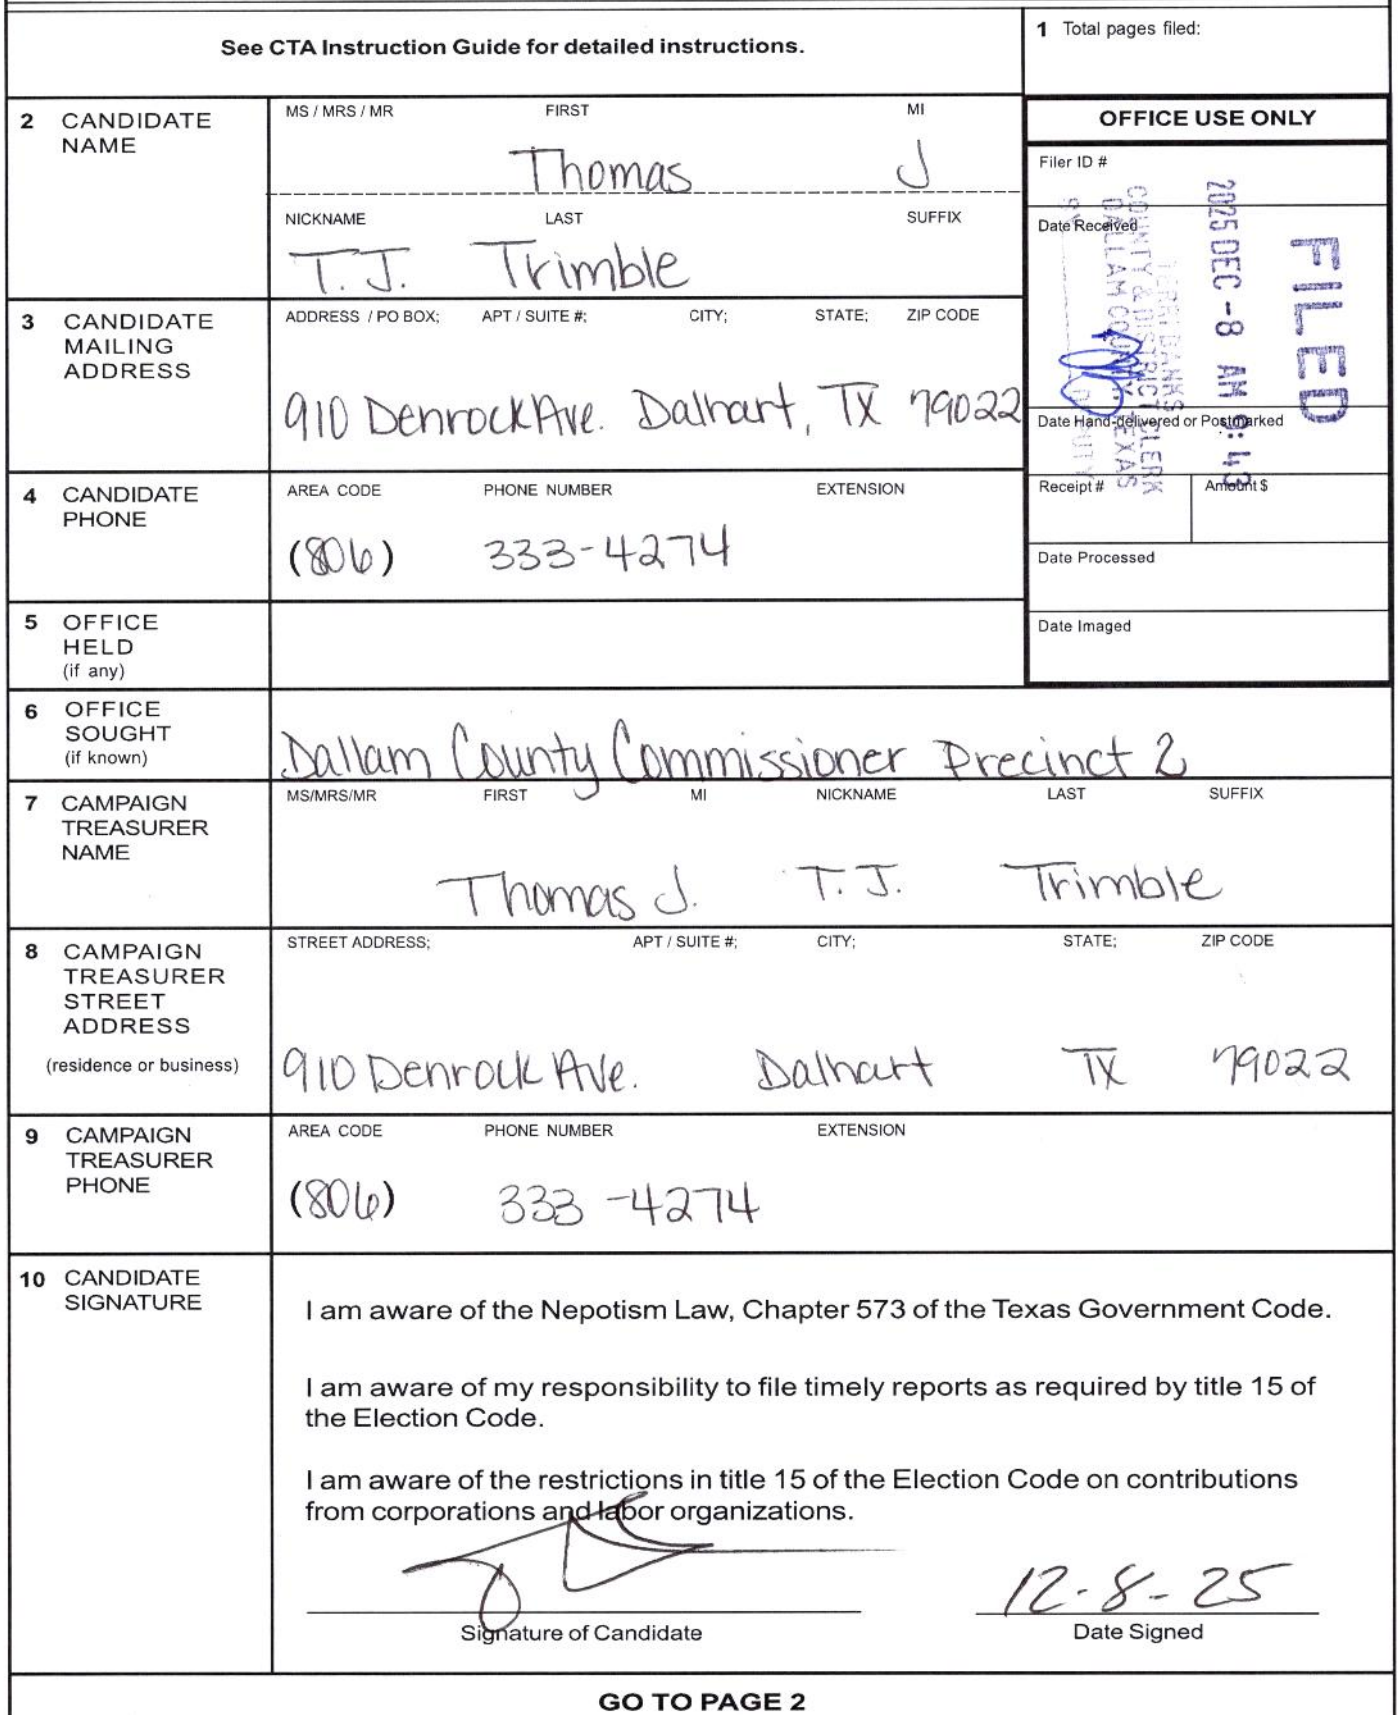 See CTA Instruction Guide for detailed instructions.
1 Total pages filed:
2 CANDIDATE NAME
MS / MRS / MR FIRST MI
Thomas J
NICKNAME LAST SUFFIX
T.J. Trimble
OFFICE USE ONLY
Filer ID #
Date Received
Date Hand-delivered or Postmarked
Receipt # Amount $
Date Processed
Date Imaged
FILED
2025 DEC -8 AM 9:43
TERRI BANKS
COUNTY & DISTRICT CLERK
DALLAM COUNTY, TEXAS
BY DEPUTY
3 CANDIDATE MAILING ADDRESS
ADDRESS / PO BOX; APT / SUITE #; CITY; STATE; ZIP CODE
910 Denrock Ave. Dalhart, TX 79022
4 CANDIDATE PHONE
AREA CODE PHONE NUMBER EXTENSION
(806) 333-4274
5 OFFICE HELD (if any)
6 OFFICE SOUGHT (if known)
Dallam County Commissioner Precinct 2
7 CAMPAIGN TREASURER NAME
MS/MRS/MR FIRST MI NICKNAME LAST SUFFIX
Thomas J. T.J. Trimble
8 CAMPAIGN TREASURER STREET ADDRESS
(residence or business)
STREET ADDRESS; APT / SUITE #; CITY; STATE; ZIP CODE
910 Denrock Ave. Dalhart TX 79022
9 CAMPAIGN TREASURER PHONE
AREA CODE PHONE NUMBER EXTENSION
(806) 333-4274
10 CANDIDATE SIGNATURE
I am aware of the Nepotism Law, Chapter 573 of the Texas Government Code.
I am aware of my responsibility to file timely reports as required by title 15 of
the Election Code.
I am aware of the restrictions in title 15 of the Election Code on contributions
from corporations and labor organizations.
12-8-25
Signature of Candidate Date Signed
GO TO PAGE 2